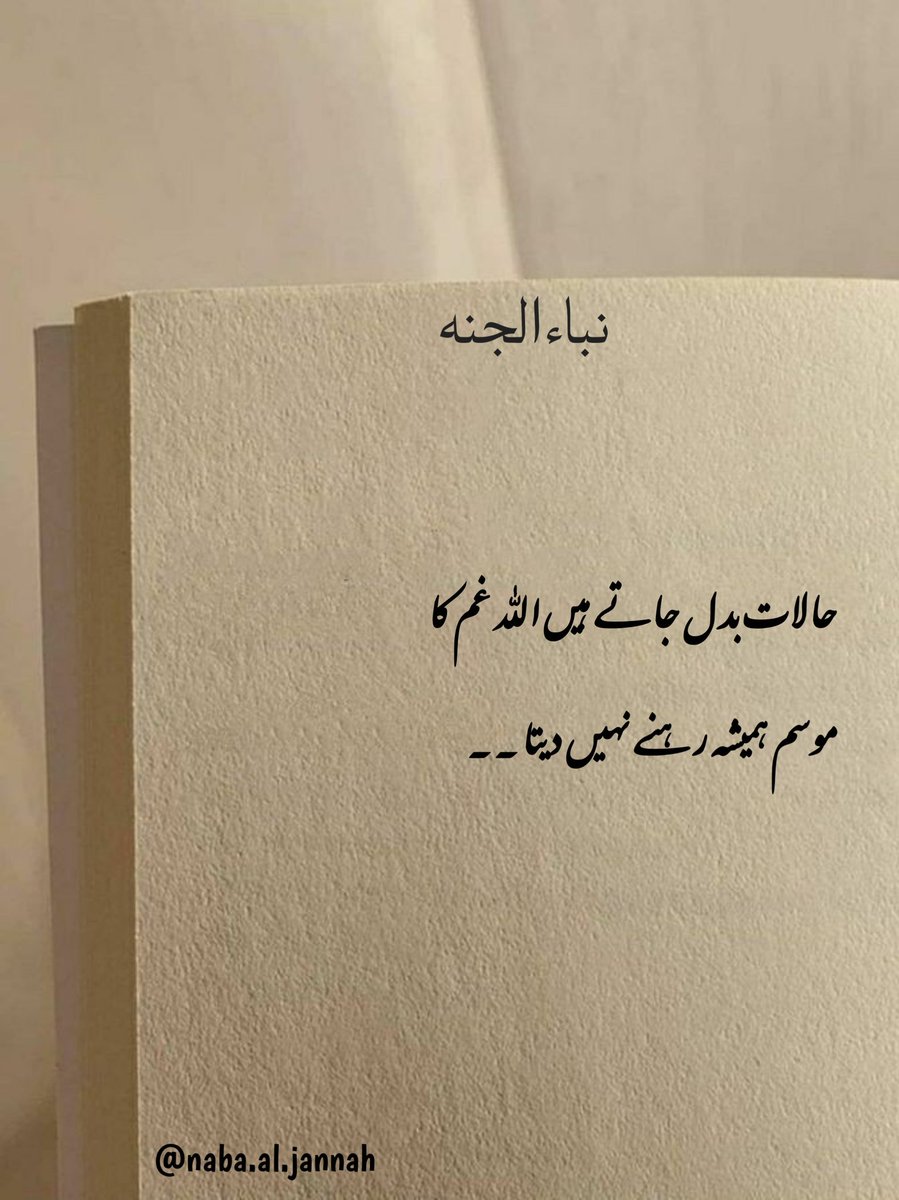 نباء الجنه
حالات بدل جاتے ہیں اللہ غم کا
موسم ہمیشہ رہنے نہیں دیتا ۔۔
@naba.al.jannah